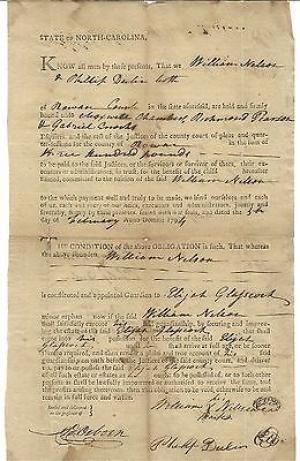 STATE OF NORTH-CAROLINA.
KNOW all men by these presents, That we William Nelson
& Phillip Dulin both
of Rowan County in the state aforesaid, are held and firmly
bound unto Maxwell Chambers, Richmond Pearson
& Gabriel Enochs
Esquires, and the rest of the Justices of the county court of pleas and quar-
ter-sessions for the county of Rowan in the sum of
three hundred pounds
to be paid to the said Justices, or the survivors or survivor of them, their exe-
cutors or administrators, in trust, for the benefit of the child hereafter
named, committed to the tuition of the said William Nelson
to the which payment well and truly to be made, we bind ourselves and each
of us, each and every of our heirs, executors and administrators, jointly and
severally, firmly by these presents, sealed with our seals, and dated this 5th
day of February Anno Domini 1794
THE CONDITION of the above OBLIGATION is such, That whereas
the above bounden William Nelson
is constituted and appointed Guardian to Elijah Glascock
minor orphan now if the said William Nelson
shall faithfully execute his said guardianship, by securing and improv-
ing the estate of the said Elijah Glascock that shall
come into his possession, for the benefit of the said Elijah
Glascock until he shall arrive at full age, or be sooner
thereto required, and then render a plain and true account of his said
guardianship on oath before the Justices of our said county court, and deliver
up, pay to, or possess the said Elijah Glascock
of all such estate or estates as ought to be possessed, or to such other
persons as shall be lawfully empowered or authorised to receive the same, and
the profits arising therefrom, then this obligation to be void, otherwise to be and
remain in full force and virtue.
Sealed and delivered
in the presence of
William Nelson
his
mark
Philip Dulin